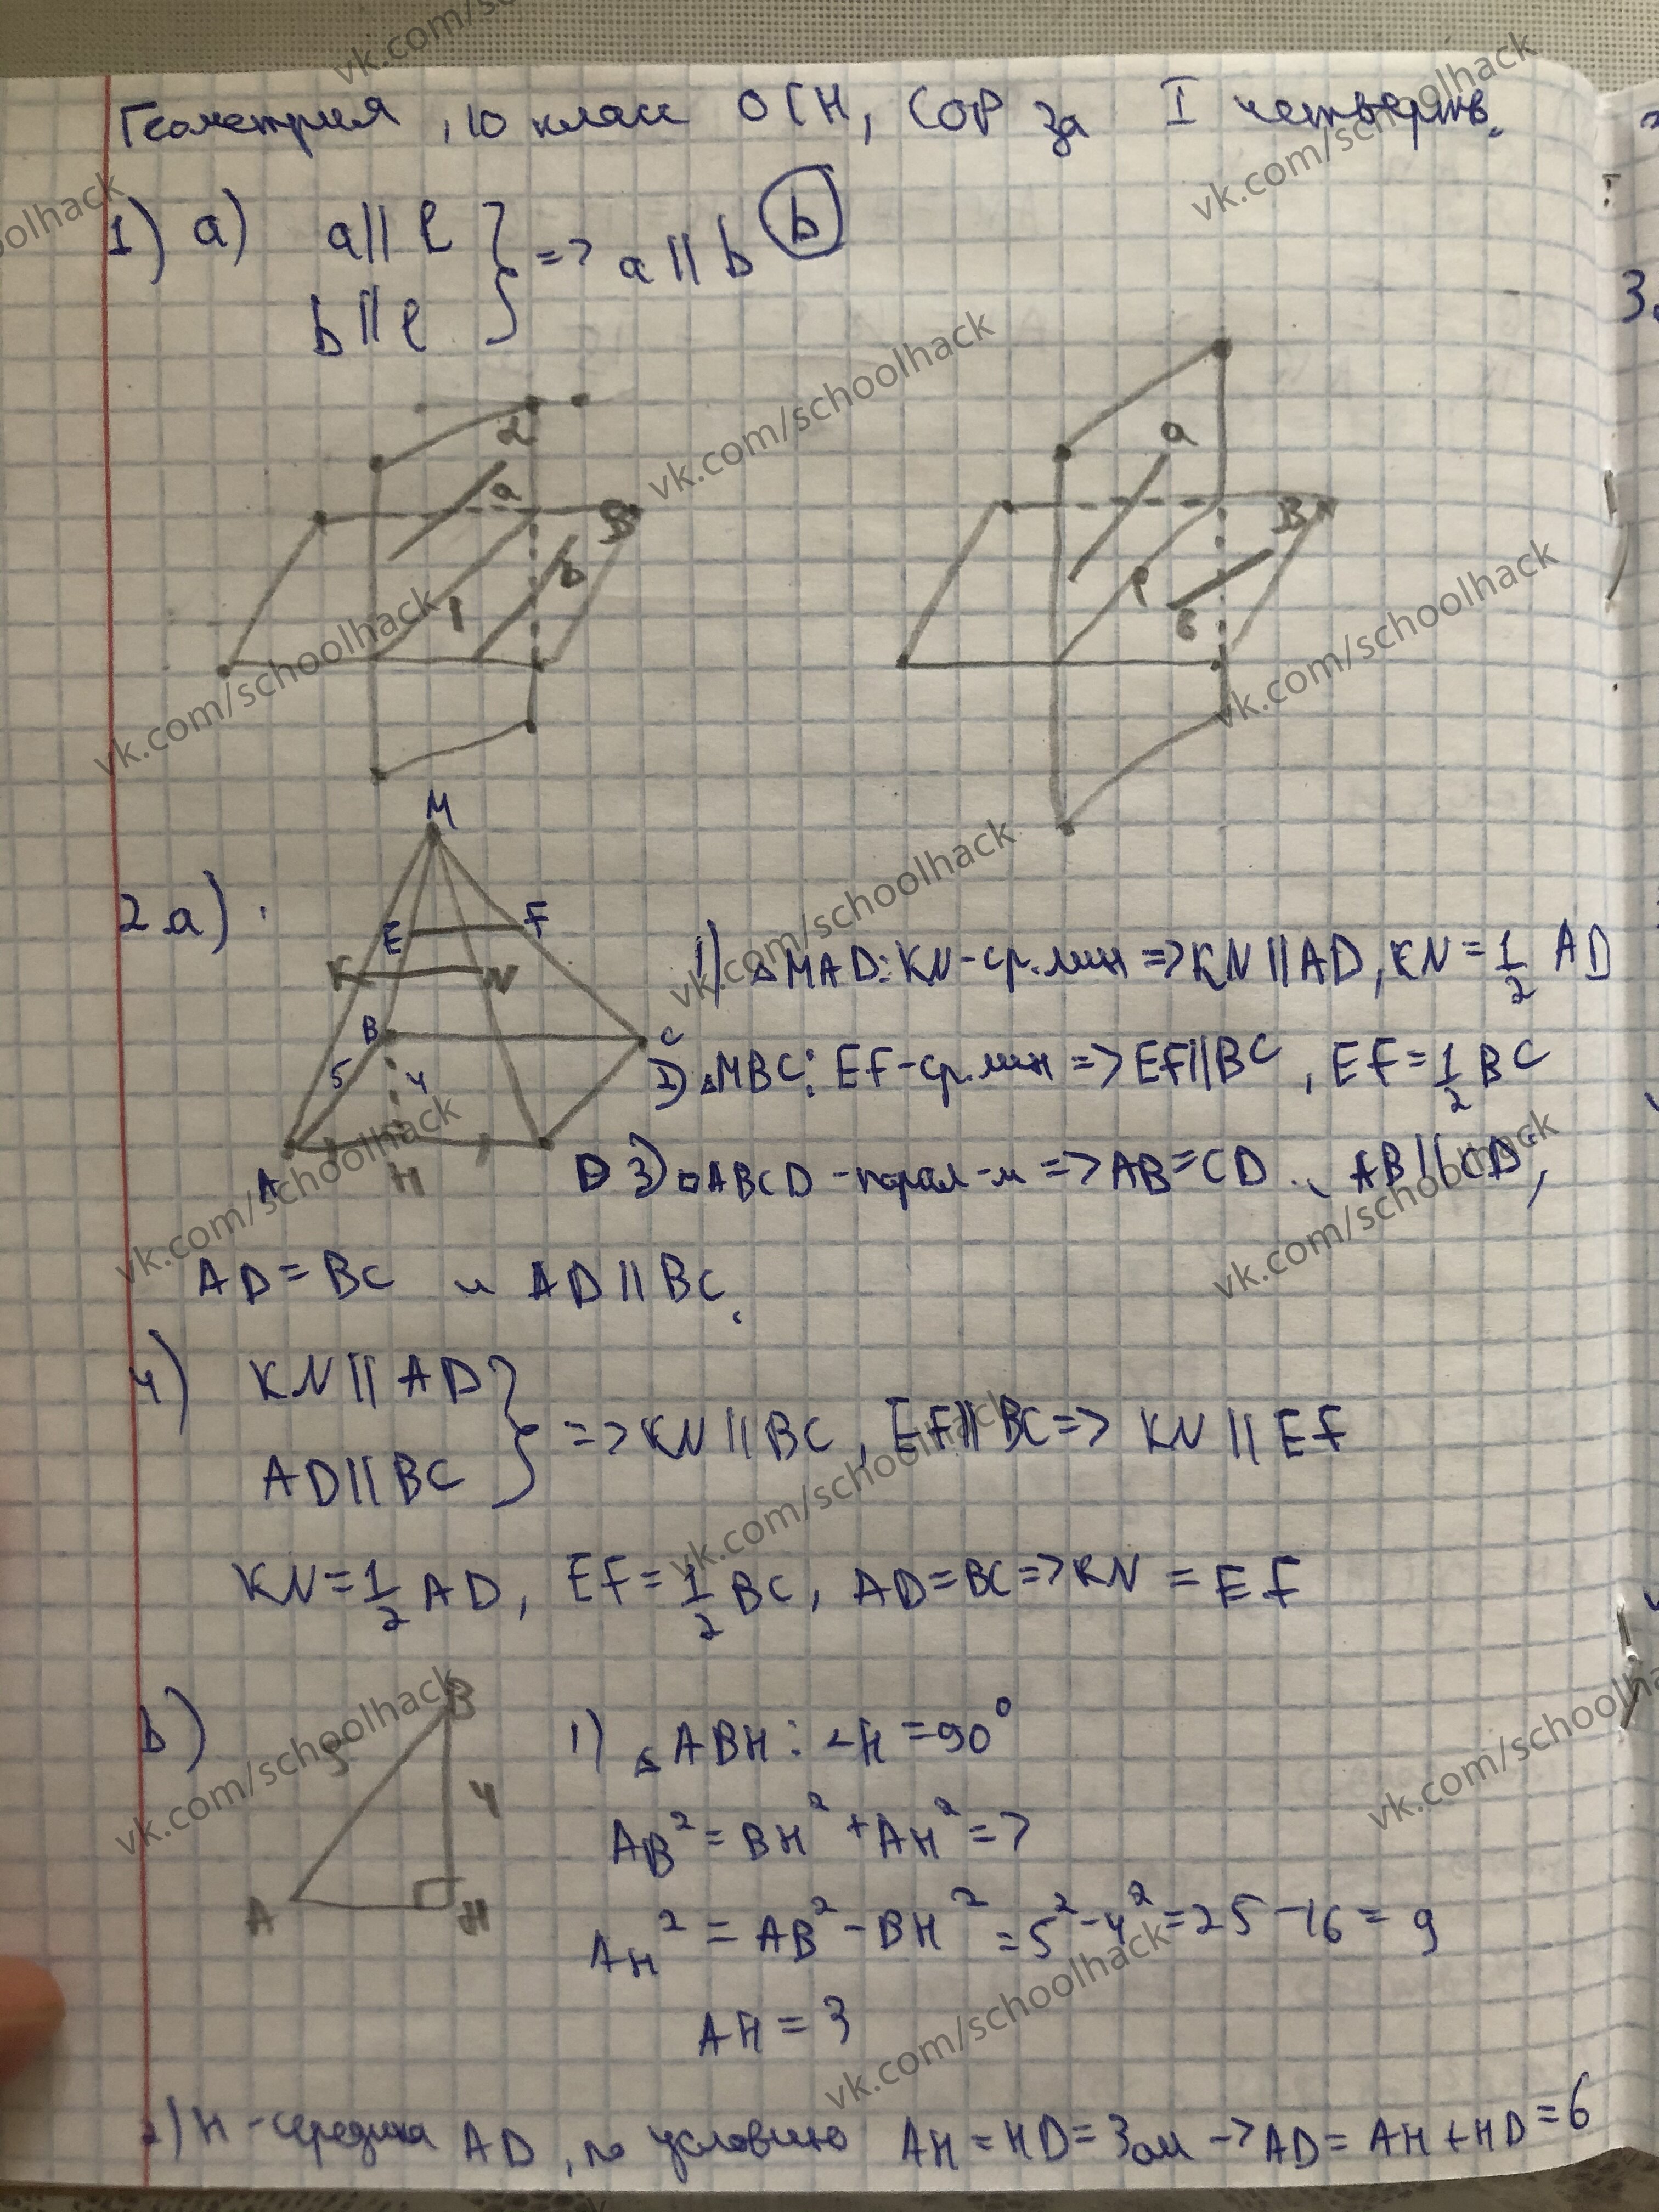 Геометрия, 10 класс ОГН, СОР за I четверть.
1) а) a || ℓ } => a || b (b)
b || ℓ
α
a
β
b
l
a
β
ℓ
б
2 а)
M
E F
K N
B C
5 4
A H D
1) △MAD: KN - ср. лин => KN || AD, KN = 1/2 AD
2) △MBC: EF - ср. лин => EF || BC, EF = 1/2 BC
3) ▱ABCD - парал-м => AB = CD и AB || CD,
AD = BC и AD || BC.
4) KN || AD } => KN || BC, EF || BC => KN || EF
AD || BC
KN = 1/2 AD, EF = 1/2 BC, AD = BC => KN = EF
b)
B
5 4
A H
1) △ABH: ∠H = 90°
AB² = BH² + AH² =>
AH² = AB² - BH² = 5² - 4² = 25 - 16 = 9
AH = 3
2) H - середина AD, по условию AH = HD = 3 см -> AD = AH + HD = 6
3.
vk.com/schoolhack